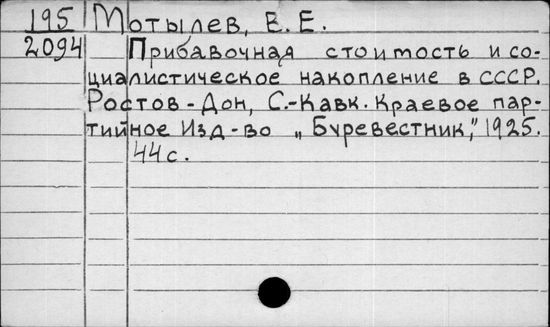 195 Мотылев, В. Е.
2094 Прибавочная стоимость и со-
циалистическое накопление в СССР.
Ростов-Дон, С.-Кавк. Краевое пар-
тийное Изд-во „Буревестник," 1925.
44 с.